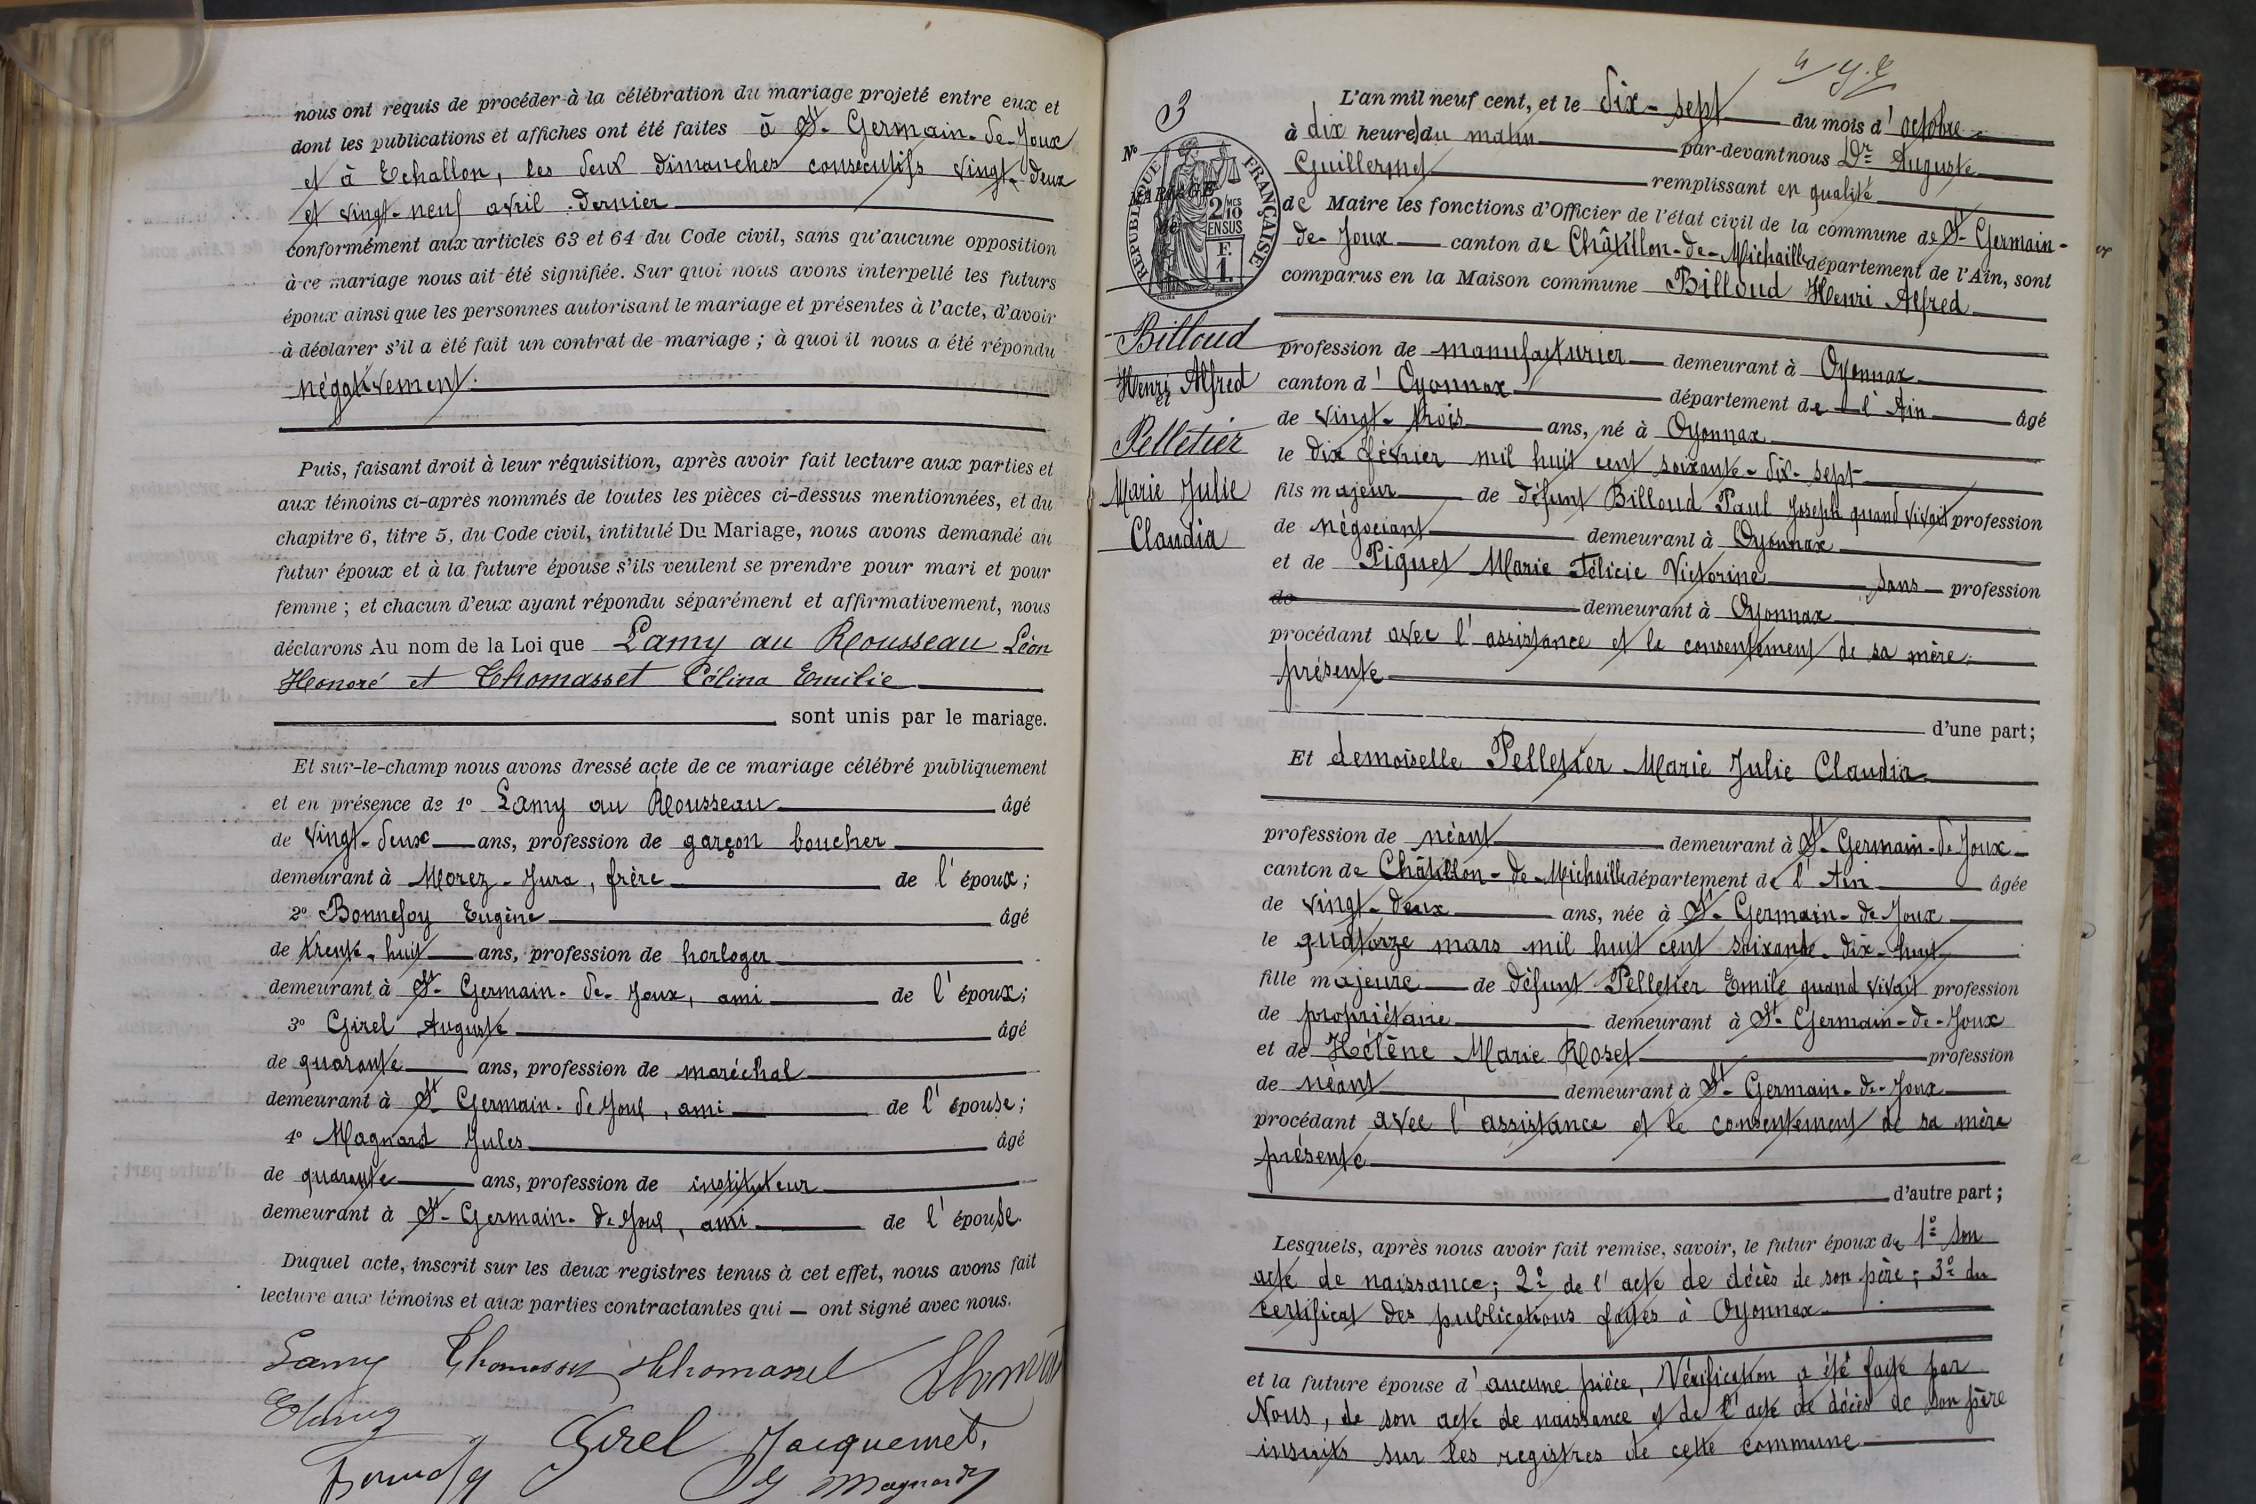 nous ont requis de procéder à la célébration du mariage projeté entre eux et
dont les publications et affiches ont été faites à St- Germain-de-Joux
et à Echallon, les deux dimanches consécutifs vingt-deux
et vingt-neuf avril dernier
conformément aux articles 63 et 64 du Code civil, sans qu'aucune opposition
à ce mariage nous ait été signifiée. Sur quoi nous avons interpellé les futurs
époux ainsi que les personnes autorisant le mariage et présentes à l'acte, d'avoir
à déclarer s'il a été fait un contrat de mariage ; à quoi il nous a été répondu
négativement.
Puis, faisant droit à leur réquisition, après avoir fait lecture aux parties et
aux témoins ci-après nommés de toutes les pièces ci-dessus mentionnées, et du
chapitre 6, titre 5, du Code civil, intitulé Du Mariage, nous avons demandé au
futur époux et à la future épouse s'ils veulent se prendre pour mari et pour
femme ; et chacun d'eux ayant répondu séparément et affirmativement, nous
déclarons Au nom de la Loi que Lamy au Rousseau Léon
Honoré et Thomasset Célina Emilie
sont unis par le mariage.
Et sur-le-champ nous avons dressé acte de ce mariage célébré publiquement
et en présence de 1° Lamy au Rousseau âgé
de vingt-deux ans, profession de garçon boucher
demeurant à Morez-Jura, frère de l'époux;
2° Bonnefoy Eugène âgé
de trente-huit ans, profession de horloger
demeurant à St- Germain-de-Joux, ami de l'époux;
3° Girel Auguste âgé
de quarante ans, profession de maréchal
demeurant à St- Germain-de Joux, ami de l'épouse;
4° Magnard Jules âgé
de quarante ans, profession de instituteur
demeurant à St- Germain-de Joux, ami de l'épouse.
Duquel acte, inscrit sur les deux registres tenus à cet effet, nous avons fait
lecture aux témoins et aux parties contractantes qui — ont signé avec nous.
Lamy Thomasset Thomasset
Girel Jacquemet,
Magnard
3
N°
MARIAGE
de
RÉPUBLIQUE FRANÇAISE
2/10 MES
EN SUS
F.
1.
Billoud
Henri Alfred
et
Pelletier
Marie Julie
Claudia
L'an mil neuf cent, et le dix-sept du mois d'octobre
à dix heures du matin par-devant nous Dr Auguste
Guillermet remplissant en qualité
de Maire les fonctions d'Officier de l'état civil de la commune de St- Germain-
de-Joux canton de Châtillon-de-Michaille département de l'Ain, sont
comparus en la Maison commune Billoud Henri Alfred
profession de manufacturier demeurant à Oyonnax
canton d'Oyonnax département de l'Ain âgé
de vingt-trois ans, né à Oyonnax
le dix février mil huit cent soixante-dix-sept
fils majeur de défunt Billoud Paul Joseph quand vivait profession
de négociant demeurant à Oyonnax
et de Piquet Marie Félicie Victorine sans profession
de demeurant à Oyonnax
procédant avec l'assistance et le consentement de sa mère,
présente
d'une part;
Et demoiselle Pelletier Marie Julie Claudia
profession de néant demeurant à St- Germain-de Joux
canton de Châtillon-de-Michaille département de l'Ain âgée
de vingt-deux ans, née à St- Germain-de Joux
le quatorze mars mil huit cent soixante-dix-huit
fille majeure de défunt Pelletier Emile quand vivait profession
de propriétaire demeurant à St- Germain-de-Joux
et de Hélène Marie Roset profession
de néant demeurant à St- Germain-de-Joux
procédant avec l'assistance et le consentement de sa mère
présente
d'autre part;
Lesquels, après nous avoir fait remise, savoir, le futur époux de 1° son
acte de naissance; 2° de l'acte de décès de son père; 3° du
certificat des publications faites à Oyonnax
et la future épouse d'aucune pièce, Vérification a été faite par
Nous, de son acte de naissance et de l'acte de décès de son père
inscrits sur les registres de cette commune